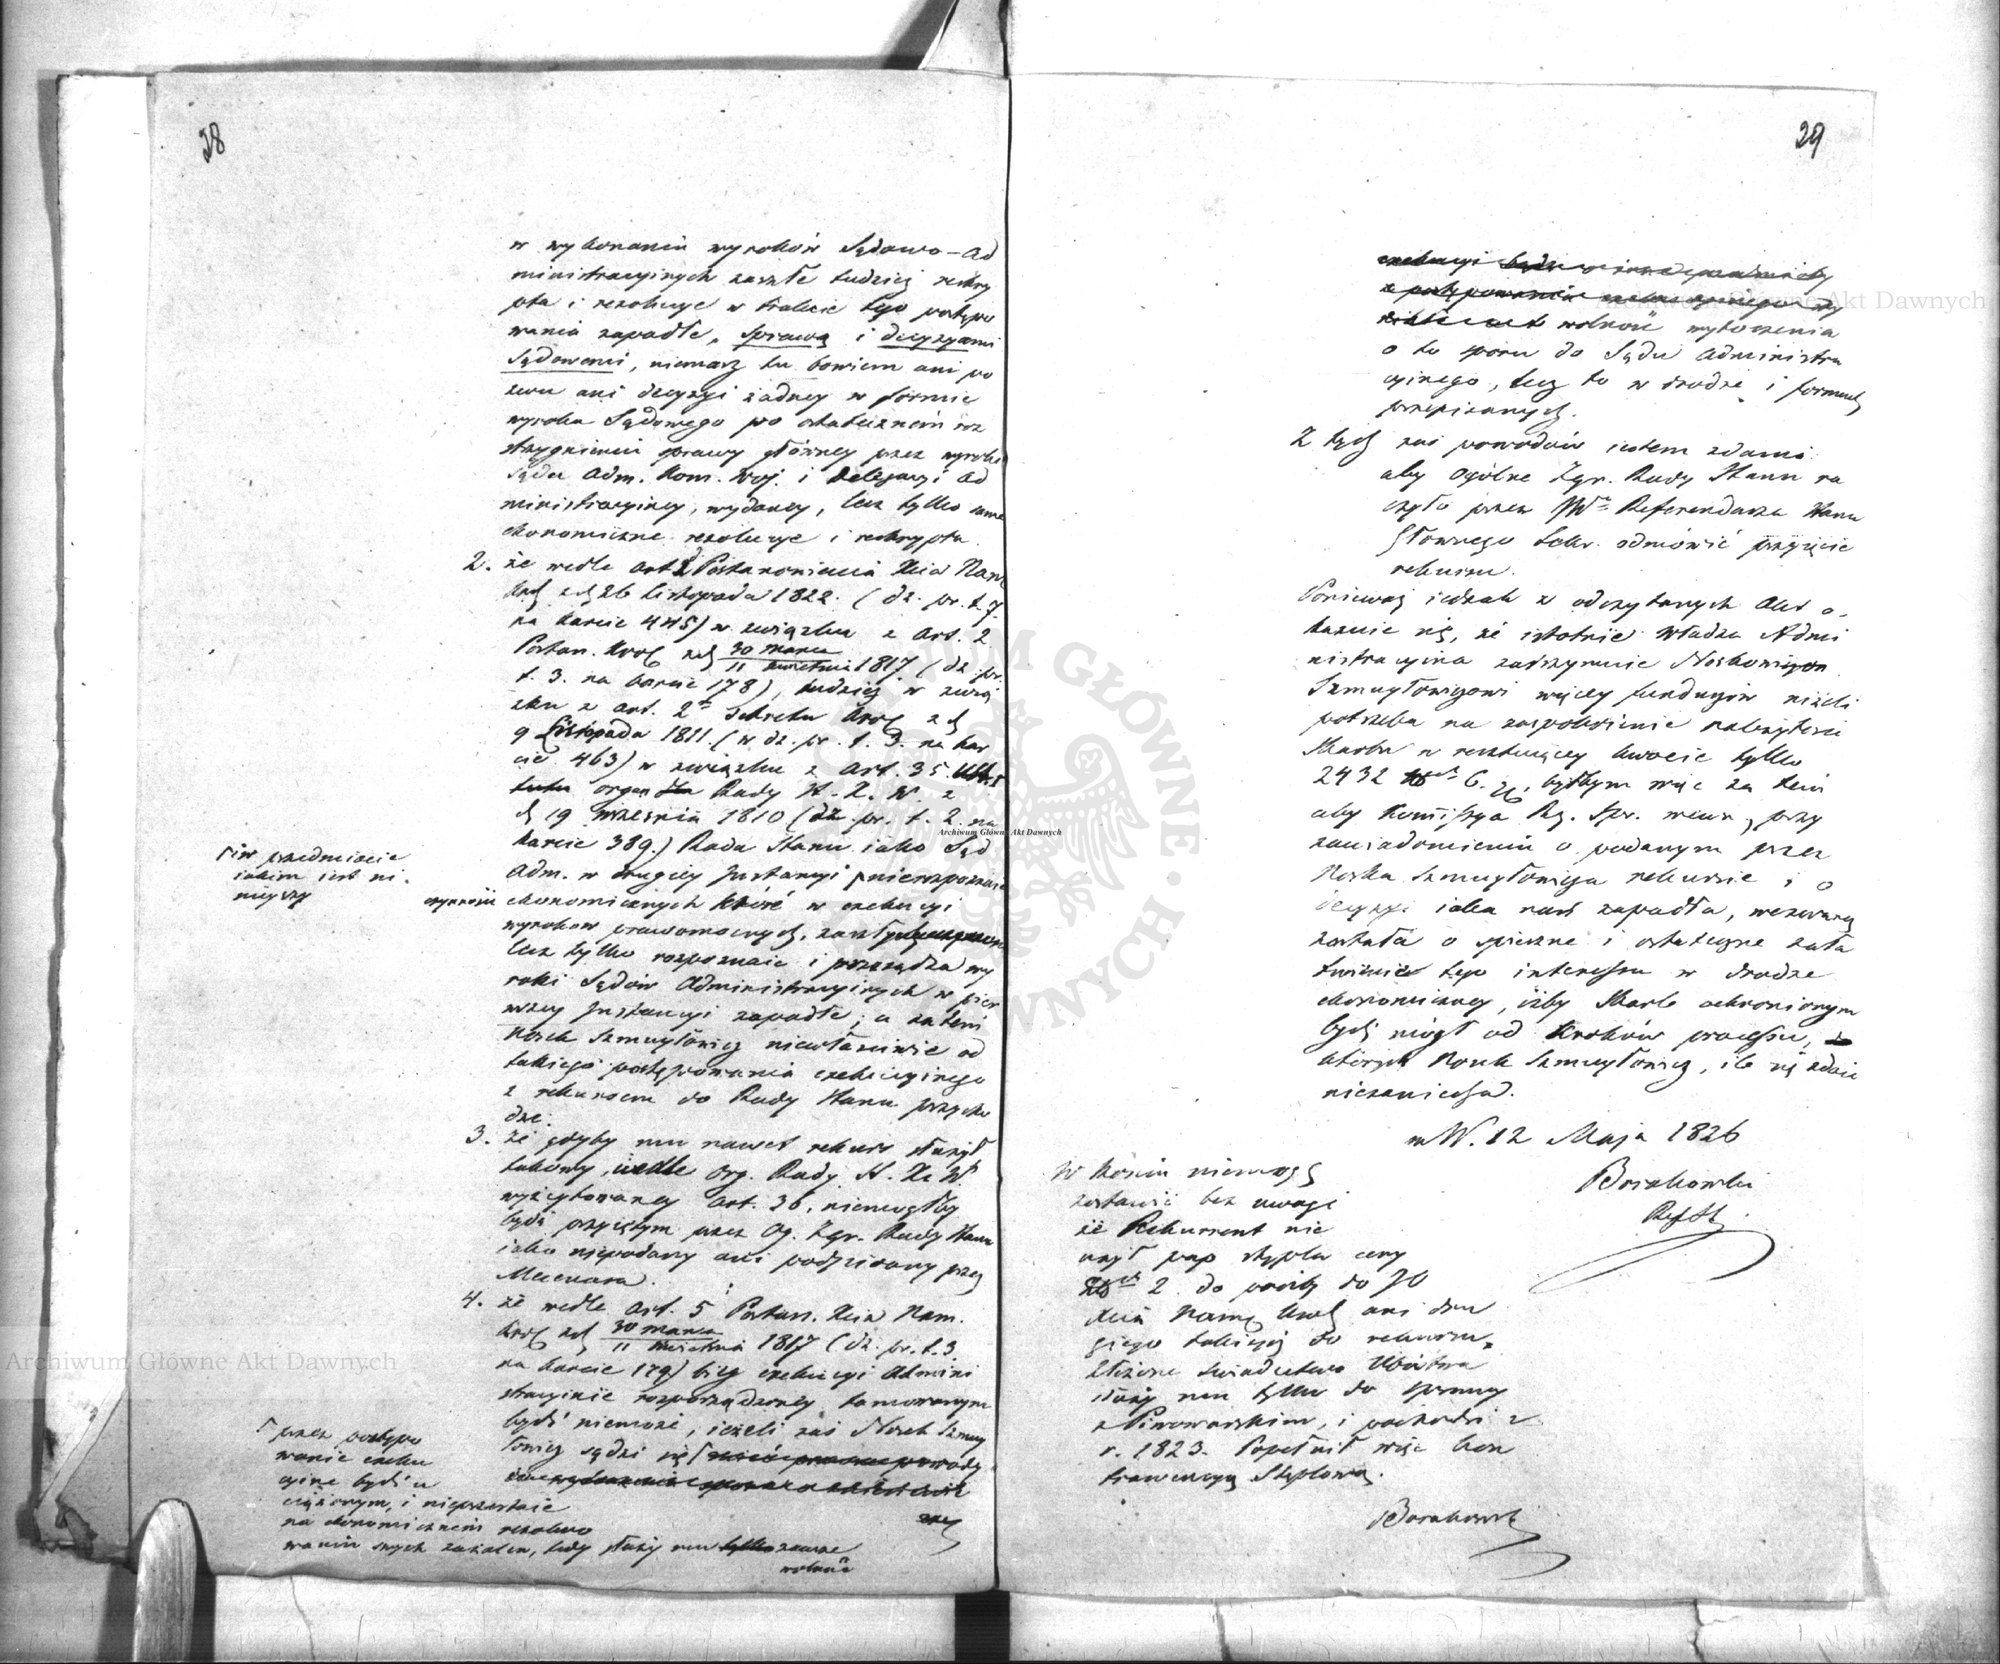 28
w wykonaniu wyroków Sądowo-Ad
ministracyinych zaszłe tudzież reskry
pta i rezolucye w trakcie tego postępo
wania zapadłe, sprawą i decyzyami
Sądowemi, niemasz tu bowiem ani po
zwu ani decyzyi żadney w formie
wyroku Sądowego po ostatecznem roz
strzygnieniu sprawy główney przez wyroki
Sądu Adm. Kom. Woj. i Delegacyi Ad
ministracyiney, wydaney, lecz tylko same
ekonomiczne rezolucye i reskrypta.
2. że wedle art Postanowienia Xcia Nam
Król z d. 26 Listopada 1822. (dz. pr. t. 7.
na karcie 445) w związku z Art. 2
Postan. Król z d. 30 marca / 11 kwietnia 1817 (dz. pr.
t. 3. na karcie 178), tudzież w zwią
zku z art. 2 Dekretu Król z d
9 Listopada 1811. (w dz. pr. t. 3. na kar
cie 463) w związku z Art. 35.
organ Rady St. X. W. z
d 19 września 1810 (dz. pr. t. 2. na
karcie 389.) Rada Stanu iako Sąd
Adm. w drugiey Instancyi nierozpoznaie
┌ w przedmiocie
iakim iest ni
nieyszy
czynności ekonomicznych które w exekucyi
wyroków prawomocnych, zaszły
lecz tylko rozpoznaie i przesądza wy
roki Sądów Administracyinych w pier
wszey Instancyi zapadłe; a zatem
Nosek Szmuyłowicz niewłaściwie od
takiego postępowania exekucyinego
z rekursem do Rady Stanu przycho
dzi.
3. że gdyby mu nawet rekurs służył
takowy, wedle org. Rady St. X. W.
wyżcytowaney art. 36, niemógłby
bydź przyiętym przez Og. Zgr. Rady Stanu
iako niepodany ani podpisany przez
Mecenasa.
4. że wedle art. 5 Postan. Xcia Nam.
Król z d 30 marca / 11 kwietnia 1817 (dz. pr. t. 3
na karcie 179) bieg exekucyi Admini
stracyinie rozporządzoney tamowanym
bydź niemoże, ieżeli zaś Nosek Szmuy
łowicz sądzi się
┌ przez postępo
wanie exeku
cyine bydź u
ciążonym, i nieprzestaie
na ekonomicznem rezolwo
waniu swych zażaleń, tedy służy mu tylko zawsze
wolność
29
wolność wytoczenia
o to sporu do Sądu Administra
cyinego, lecz to w drodze i formach
przepisanych.
Z tych zaś powodów iestem zdania
aby Ogólne Zgr. Rady Stanu ra
czyło przez JW Referendarza Stanu
Głównego Sekr. odmówić przyięcie
rekursu.
Ponieważ iednak z odczytanych Akt o-
kazuie się, że istotnie Władza Admi
nistracyina zatrzymuie Noskowi
Szmuyłowiczowi więcey funduszów niżeli
potrzeba na zaspokoienie należytości
Skarbu w resztuiącey kwocie tylko
2432 6. byłbym więc za tem
aby Kommissya Rz. Spr. wewn, przy
zawiadomieniu o podanym przez
Noska Szmuyłowicza rekursie i o
decyzyi iaka nań zapadła, wezwaną
została o spieszne i ostateczne zała
twienie tego interessu w drodze
ekonomiczney, iżby Skarb ochronionym
bydź mógł od kroków processu,
których Nosek Szmuyłowicz, ile się zdaie
niezaniecha.
w W. 12 Maja 1826
Borakowski
Ref St.
W końcu niemogę
zostawić bez uwagi
że Rekurrent nie
użył pap stęplu ceny
2 do prośby do JO
Xcia Namię Król ani dru
giego takiegoż do rekursu.
Złożone świadectwo Ubóstwa
służy mu tylko do sprawy
z Piwowarskim, i pochodzi z
r. 1823. Popełnił więc kon
trawencyą Stęplową.
Borakowski
Archiwum Główne Akt Dawnych
Archiwum Główne Akt Dawnych
Archiwum Główne Akt Dawnych